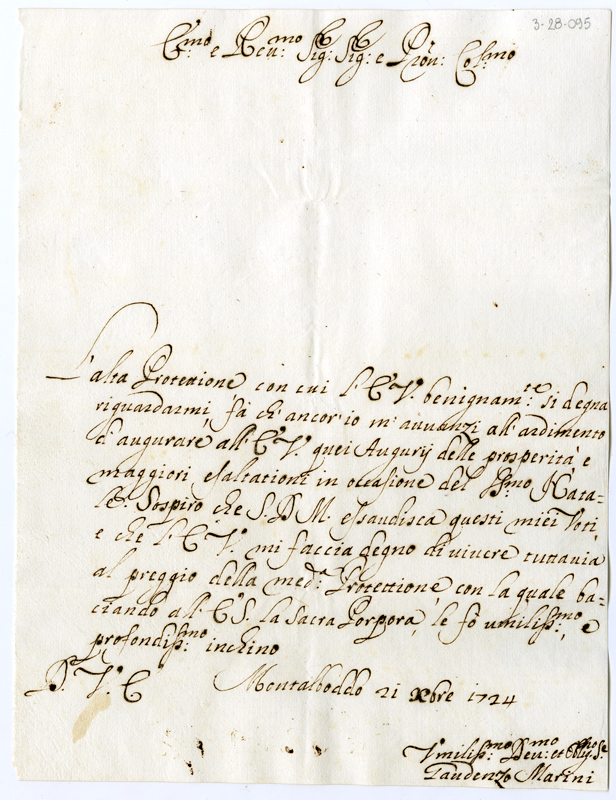 3-28-095
E.mo e Reu.mo Sig: Sig: e Pron: Col.mo
L'alta Protettione con cui l'E.V. benignam:te si degna
riguardarmi, fà ch'ancor'io m'auuanzi all'ardimento
d'augurare all'E.V. quei Augurij delle prosperità e
maggiori esaltationi in occasione del SS.mo Nata=
le. Sospiro che S.D.M. essaudisca questi miei Voti,
e che l'E.V. mi faccia degno di viuere tuttauia
al preggio della med.a Protettione, con la quale ba=
ciando all'E.S. la Sacra Porpora, le fò umiliss:mo, e
profondiss:mo inchino
D. V. E.
Montalboddo 21 Xbre 1724
Vmiliss:mo Deu:mo et Oblig:mo Se
Gaudenzo Marini